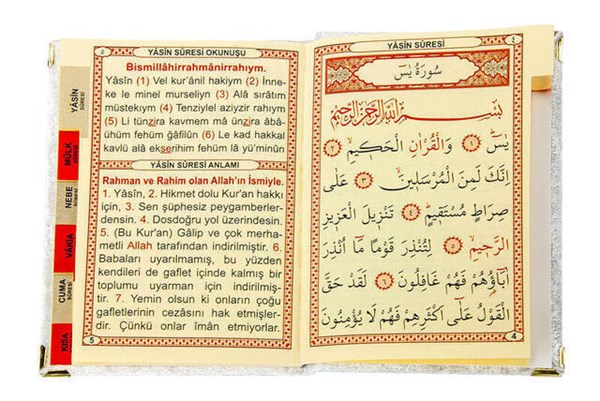 YÂSİN SÛRESİ OKUNUŞU
Bismillâhirrahmânirrahıym.
Yâsîn (1) Vel kur'ânil hakiym (2) İnne-
ke le minel murseliyn (3) Alâ sırâtım
müstekıym (4) Tenziylel aziyzir rahıym
(5) Li tünzira kavmem mâ ünzira âbâ-
ühüm fehüm ğâfilûn (6) Le kad hakkal
kavlü alâ ekserihim fehüm lâ yü'minûn
YÂSİN SÛRESİ ANLAMI
Rahman ve Rahim olan Allah'ın İsmiyle.
1. Yâsîn, 2. Hikmet dolu Kur'an hakkı
için, 3. Sen şüphesiz peygamberler-
densin. 4. Dosdoğru yol üzerindesin.
5. (Bu Kur'an) Gâlip ve çok merha-
metli Allah tarafından indirilmiştir. 6.
Babaları uyarılmamış, bu yüzden
kendileri de gaflet içinde kalmış bir
toplumu uyarman için indirilmiş-
tir. 7. Yemin olsun ki onların çoğu
gafletlerinin cezasını hak etmişler-
dir. Çünkü onlar îmân etmiyorlar.
5
YÂSİN SÛRESİ
MÜLK SÛRESİ
NEBE SÛRESİ
VÂKIA
CUMA SÛRESİ
KISA
YÂSİN SÛRESİ
٤
سُورَةُ يٰسٓ
بِسْمِ اللّٰهِ الرَّحْمٰنِ الرَّحِيمِ
يٰسٓ ﴿١﴾ وَالْقُرْاٰنِ الْحَكِيمِ ﴿٢﴾
اِنَّكَ لَمِنَ الْمُرْسَلِينَ ﴿٣﴾ عَلٰى
صِرَاطٍ مُسْتَقِيمٍ ﴿٤﴾ تَنْزِيلَ الْعَزِيزِ
الرَّحِيمِ ﴿٥﴾ لِتُنْذِرَ قَوْمًا مَٓا اُنْذِرَ
اٰبَٓاؤُ۬هُمْ فَهُمْ غَافِلُونَ ﴿٦﴾ لَقَدْ حَقَّ
الْقَوْلُ عَلٰٓى اَكْثَرِهِمْ فَهُمْ لَا يُؤْمِنُونَ
4